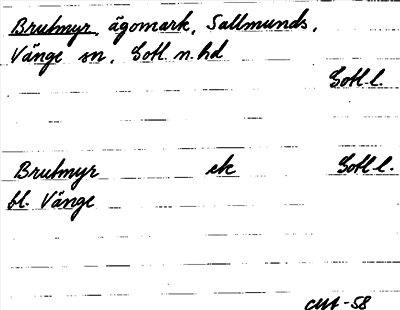 Brutmyr, ägomark, Sallmunds,
Vänge sn, Gotl. n. hd
Gotl. l.
Brutmyr ek Gotl. l.
bl. Vänge
-58